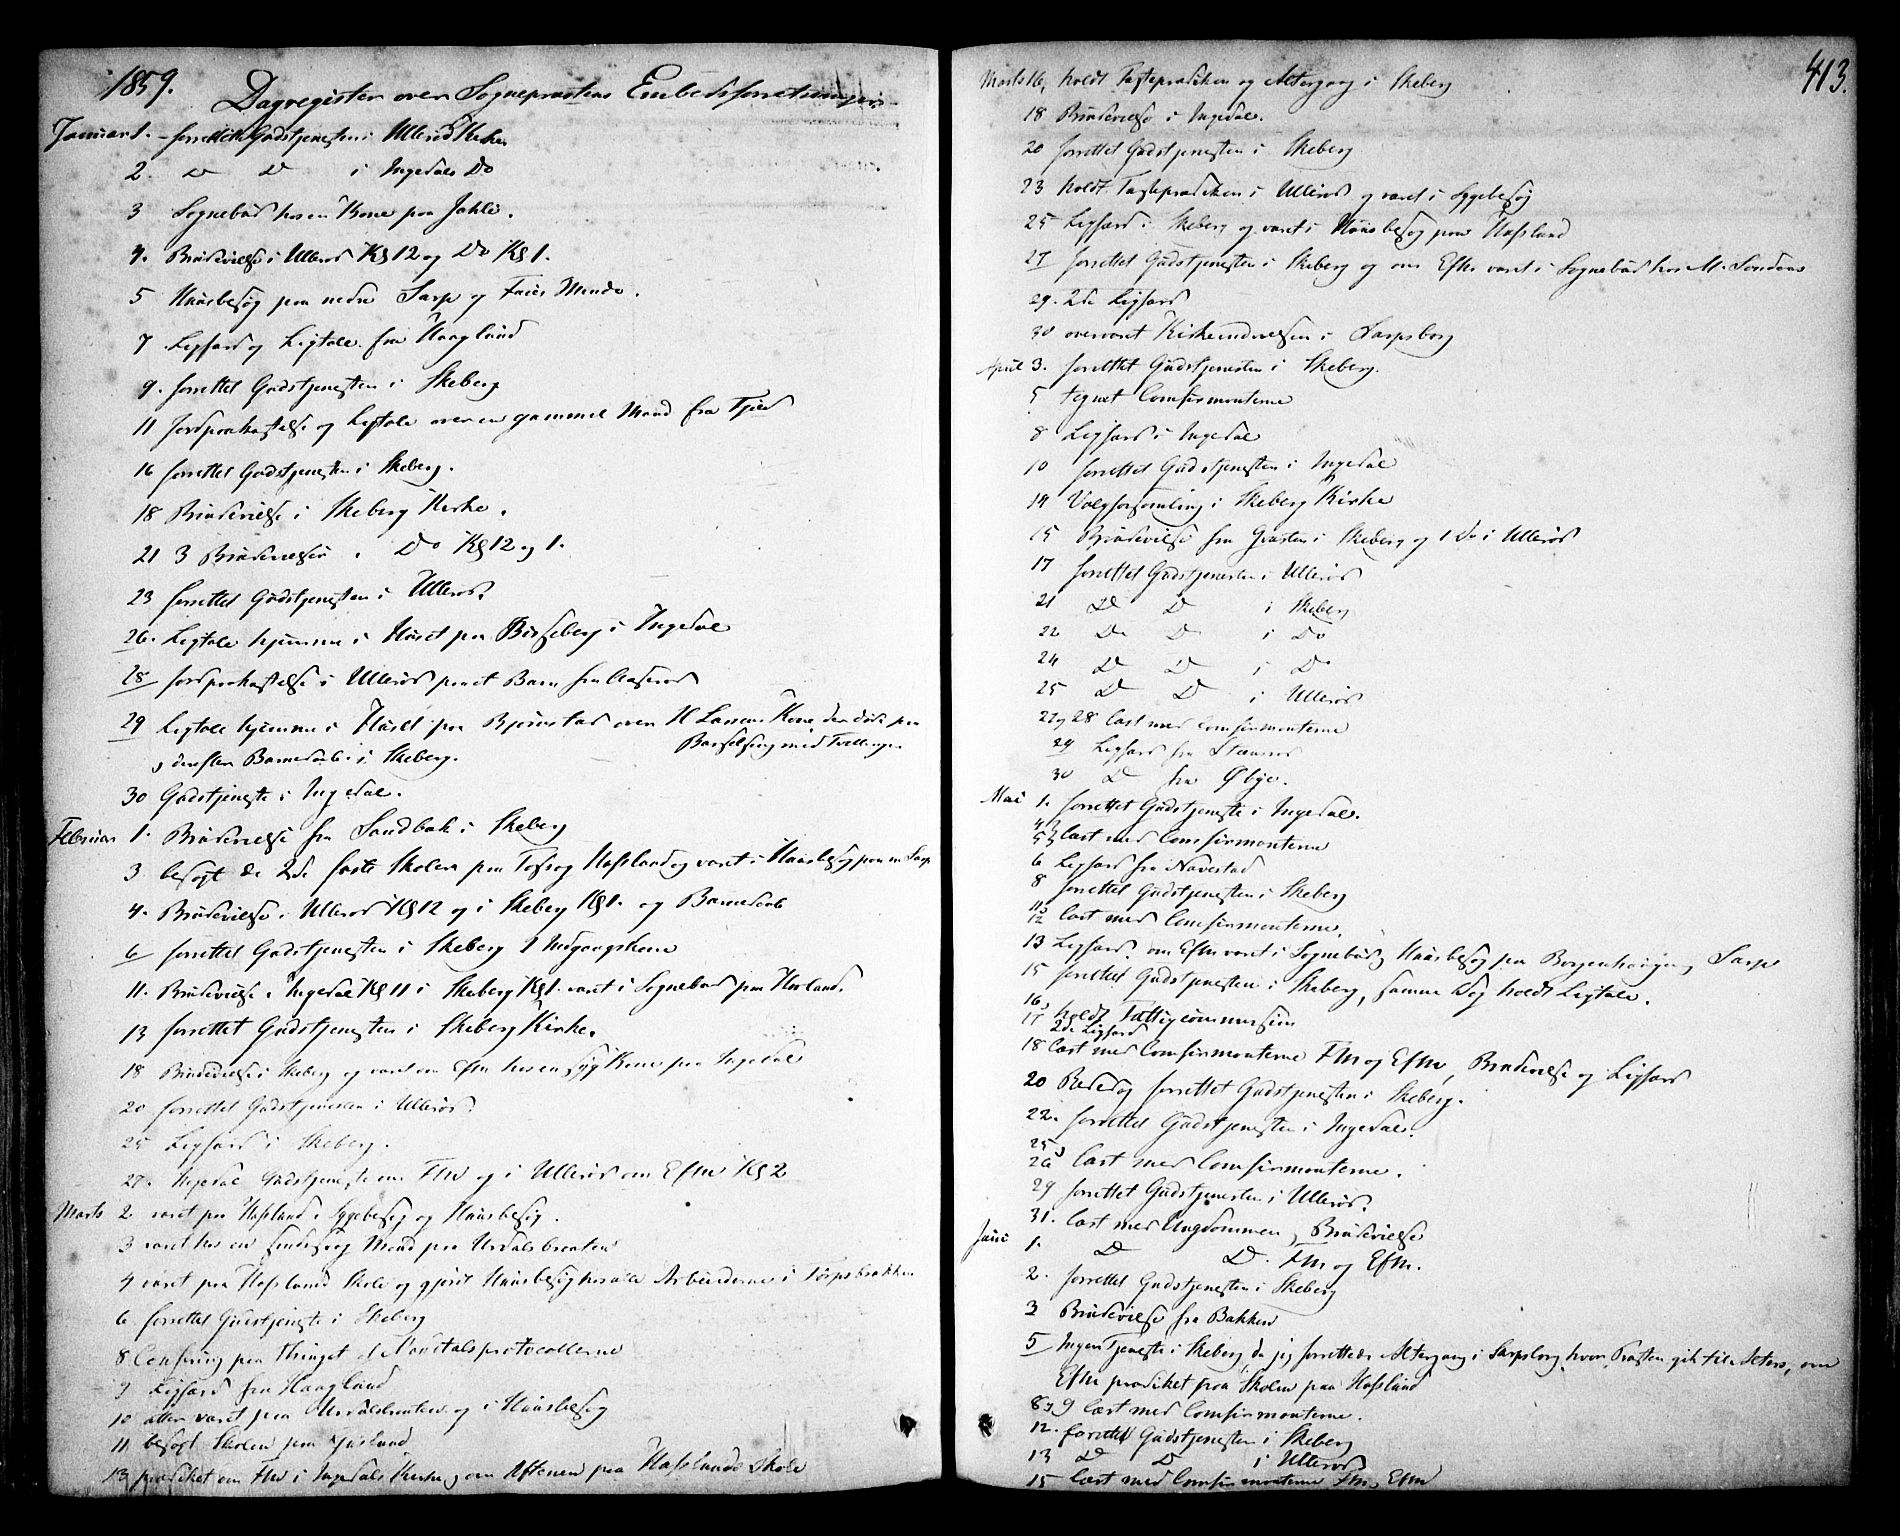 1859. Dagregister over Sognepræstens Embedsforretninger
Januar 1. forrettet Gudstjenesten i Ullerød Kirke
2. Do Do i Ingedals Do
3 Sognebud hos en Kone paa
4. Brudevielse i Ullerød Kl 12 og Do Kl 1.
5 Huusbesøg paa nedre Sarp og
7 Ligfærd og Ligtale fra Haagland
9. forrettet Gudstjenesten i Skeberg
11 Jordpaakastelse og Ligtale over en gammel Mand fra
16 forrettet Gudstjenesten i Skeberg.
18 Brudevielse i Skeberg Kirke.
21 3 Brudevielser i Do Kl 12 og 1.
23 forrettet Gudstjenesten i Ullerød.
26. Ligtale hjemme i Huset paa Bisseberg i Ingedal
28 Jordpaakastelse i Ullerød paa et Barn fra
29 Ligtale hjemme i Huset paa Bjørnstad over H Larsens Kone der døde paa
Barselseng med Tvillinger
og derefter Barnedaab i Skeberg.
30 Gudstjeneste i Ingedal.
Februar 1. Brudevielse fra Sandbak i Skeberg
3 besøgt de 2de faste Skoler paa og Hafslund og været i Huusbesøg paa n Sarp
4. Brudevielse i Ullerød Kl 12 og i Skeberg Kl 1. og Barnedaab
6 forrettet Gudstjenesten i Skeberg 1 Indgangskone
11. Brudevielse i Ingedal Kl 11 i Skeberg Kl 1. været i Sognebud paa
13 forrettet Gudstjenesten i Skeberg Kirke.
18 Brudevielse i Skeberg og været om Efm hos en syg Kone paa Ingedal
20 forrettet Gudstjenesten i Ullerød.
25 Ligfærd i Skeberg.
27. Ingedal Gudstjeneste om Fm og i Ullerød om Efm Kl 2
Marts 2 været paa Hafslund i Sygebesøg og Huusbesøg.
3 været hos en Mand paa
4 været paa Hafslunds Skole og gjort Huusbesøg hos alle Arbeiderne i
6 forrettet Gudstjeneste i Skeberg
8 paa Thinget af
9 Ligfærd fra Haagland
10 atter været paa og i Huusbesøg
11 besøgt Skolen paa
13 prædiket om Fm i Ingedals Kirke og om Aftenen paa Hafslunds Skole
413.
Marts 16, holdt Fasteprædiken og Altergang i Skeberg
18 Brudevielse i Ingedal.
20 forrettet Gudstjenesten i Skeberg
23 holdt Fasteprædiken i Ullerød og været i Sygebesøg
25 Ligfærd i Skeberg og været i Huusbesøg paa Hafslund
27 forrettet Gudstjenesten i Skeberg og om Efm været i Sognebud hos
29. 2de Ligfærd
30 overværet Kirkeindvielsen i Sarpsborg
April 3. forrettet Gudstjenesten i Skeberg.
5 tegnet Comfirmanterne
8 Ligfærd i Ingedal
10 forrettet Gudstjenesten i Ingedal
14 Valgforsamling i Skeberg Kirke
15 Brudevielse fra i Skeberg og 1 Do i Ullerød
17 forrettet Gudstjenesten i Ullerød
21 Do Do i Skeberg
22 Do Do i Do
24 Do Do i Do
25 Do Do i Ullerød
27 og 28 læst med Comfirmanterne
29 Ligfærd fra
30 Do fra Øbye.
Mai 1. forrettet Gudstjeneste i Ingedal.
4 og 5 læst med Comfirmanterne
6 Ligfærd fra Navestad
8 forrettet Gudstjenesten i Skeberg
11 og 12 læst med Comfirmanterne.
13 Ligfærd. om Efm været i Sognebud og Huusbesøg paa Borgenhaugen og Sarps
15 forrettet Gudstjenesten i Skeberg, samme Dag holdt Ligtale.
16, holdt Fattigcommission
17 2de Ligfærd
18 læst med Comfirmanterne Fm og Efm, Brudevielse og Ligfærd
20 Bededag forrettet Gudstjenesten i Skeberg.
22. forrettet Gudstjenesten i Ingedal.
25 og 26 læst med Comfirmanterne.
29 forrettet Gudstjenesten i Ullerød.
31. læst med Ungdommen, Brudevielse
Juni 1. Do Do. Fm og Efm.
2. forrettet Gudstjenesten i Skeberg
3 Brudevielse fra Bakken
5 Ingen Tjeneste i Skeberg da jeg forrettede Altergang i Sarpsborg hvor Præsten gik til Alters, om
Efm prædiket paa Skolen paa Hafslund
8 og 9 læst med Comfirmanterne.
12. forrettet Gudstjenesten i Skeberg
13 Do Do i Ullerød
15 læst med Comfirmanterne Fm og Efm